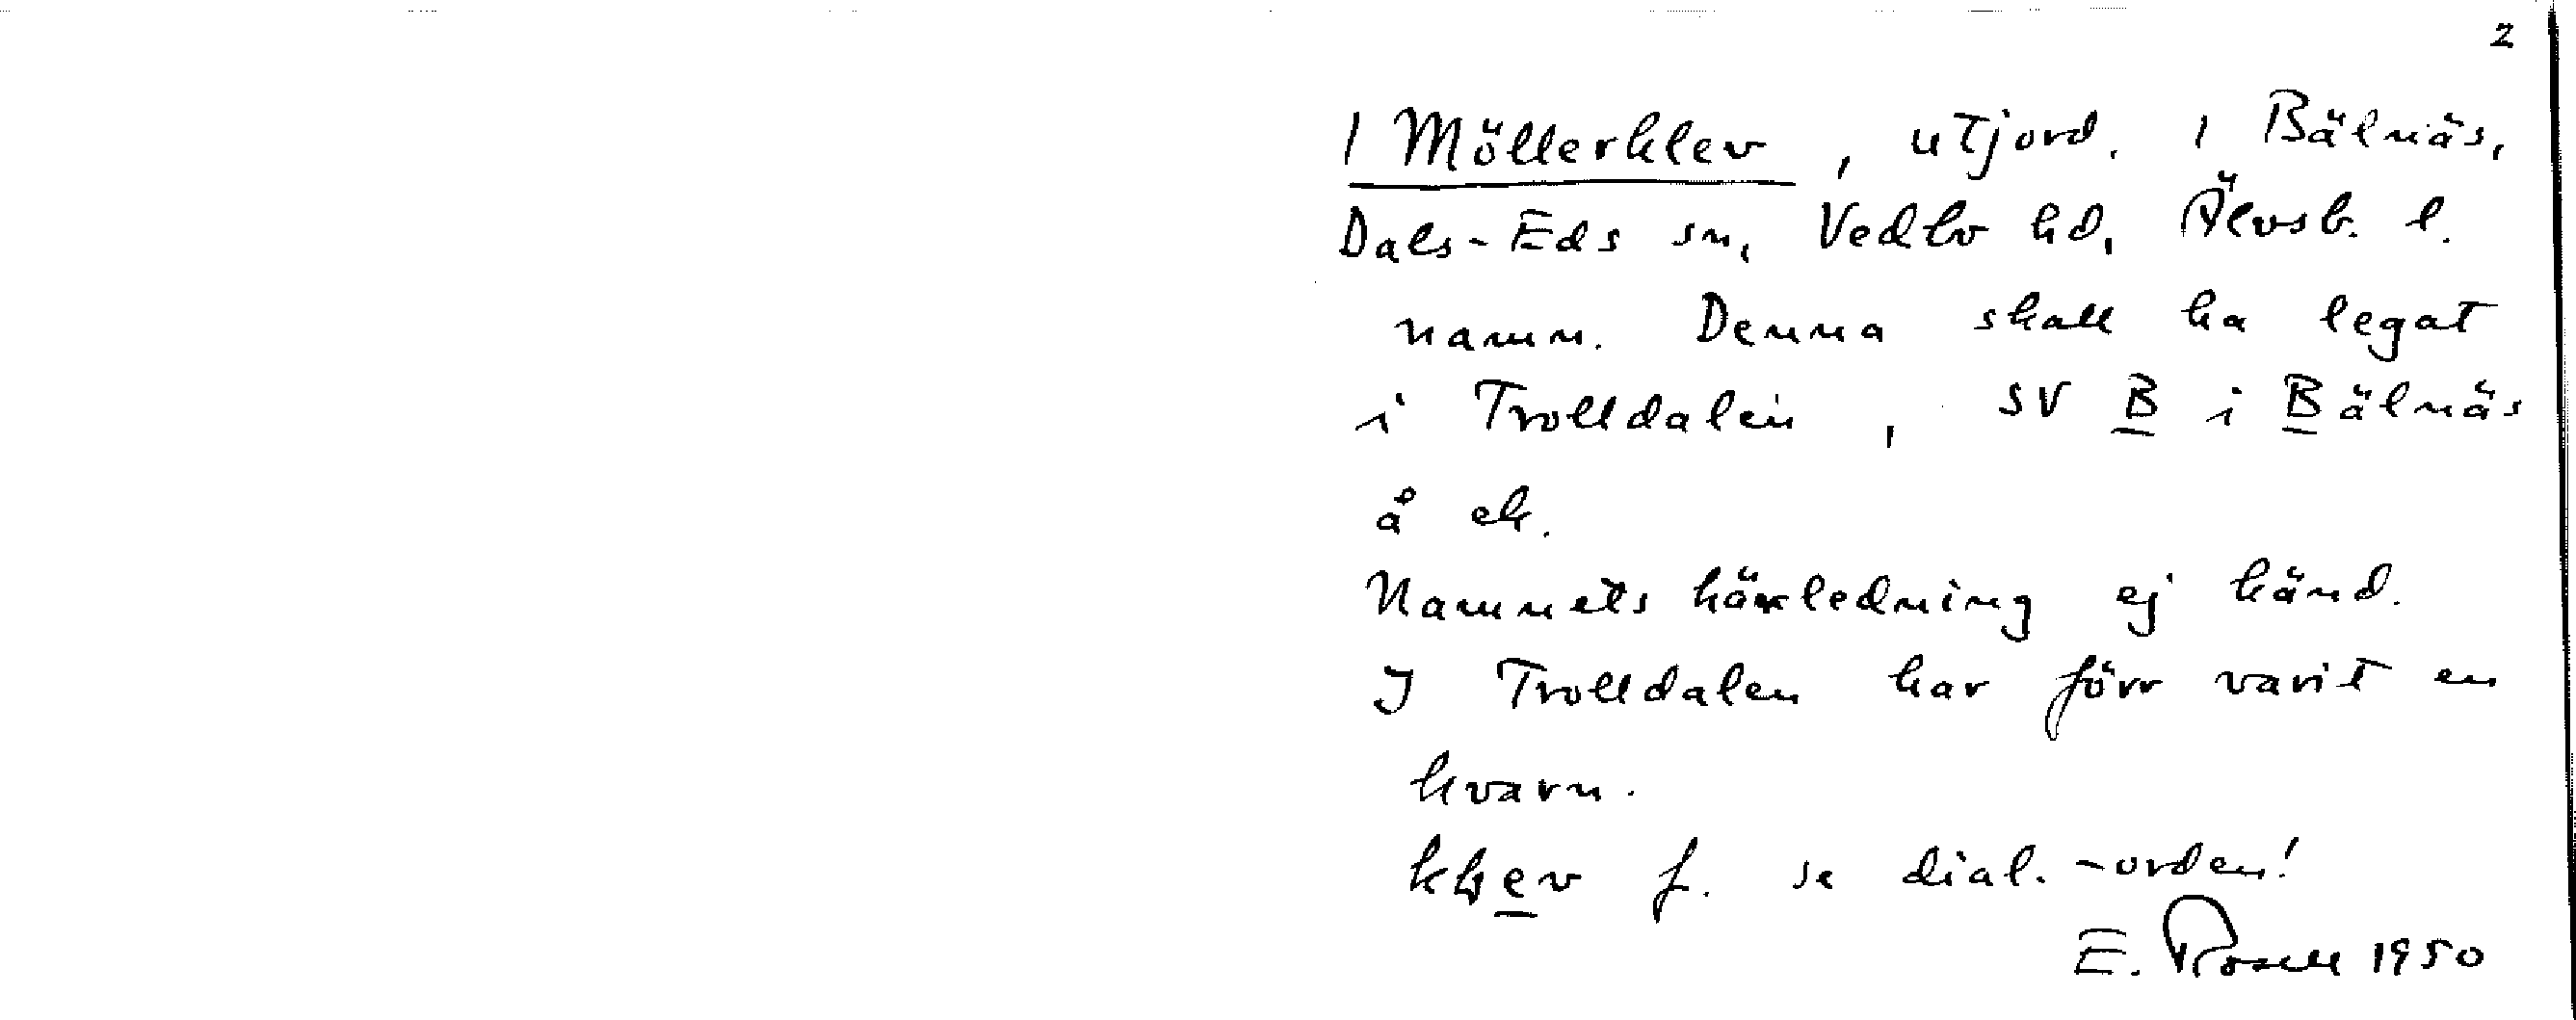 2
1 Möllerklev, utjord. 1 Bälnäs,
Dals-Eds sn, Vedbo hd, Älvsb. l.
namn. Denna skall ha legat
i Trolldalen, SV B i Bälnäs
å ek.
Namnets härledning ej känd.
I Trolldalen har förr varit en
kvarn.
f. se dial.-orden!
E. Rosell 1950